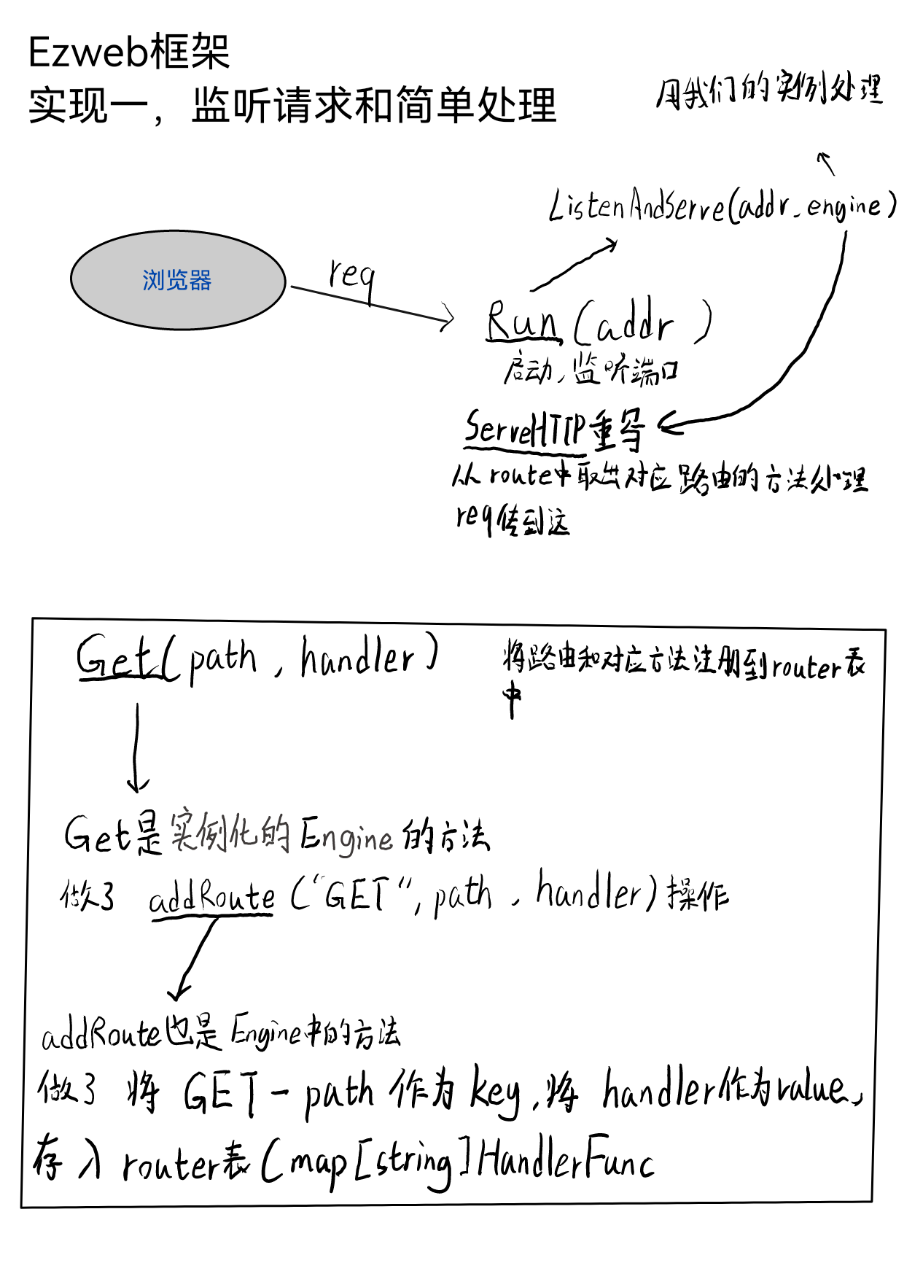 Ezweb框架
实现一，监听请求和简单处理
用我们的实例处理
ListenAndServe(addr,engine)
浏览器
req
Run(addr )
启动,监听端口
ServeHTTP重写
从route中取出对应路由的方法处理
req传到这
Get(path,handler)
将路由和对应方法注册到router表
中
Get是实例化的Engine的方法
做了 addRoute("GET",path,handler)操作
addRoute也是Engine中的方法
做了 将 GET-path 作为key,将 handler作为value,
存入router表(map[string]HandlerFunc